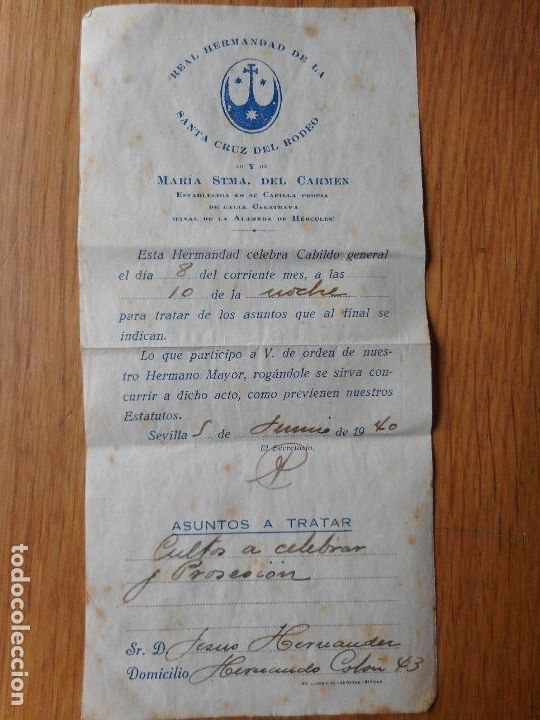 REAL HERMANDAD DE LA
SANTA CRUZ DEL RODEO
Y
MARÍA STMA. DEL CARMEN
ESTABLECIDA EN SU CAPILLA PROPIA
DE CALLE CALATRAVA
(FINAL DE LA ALAMEDA DE HÉRCULES)
Esta Hermandad celebra Cabildo general
el día 8 del corriente mes, a las
10 de la noche
para tratar de los asuntos que al final se
indican.
Lo que participo a V. de orden de nues-
tro Hermano Mayor, rogándole se sirva con-
currir a dicho acto, como previenen nuestros
Estatutos.
Sevilla 5 de Junio de 1940
El Secretario,
ASUNTOS A TRATAR
Cultos a celebrar
y Prosesión
Sr. D. Jesus Hernandez
Domicilio Hernando Colón 43
todocoleccion